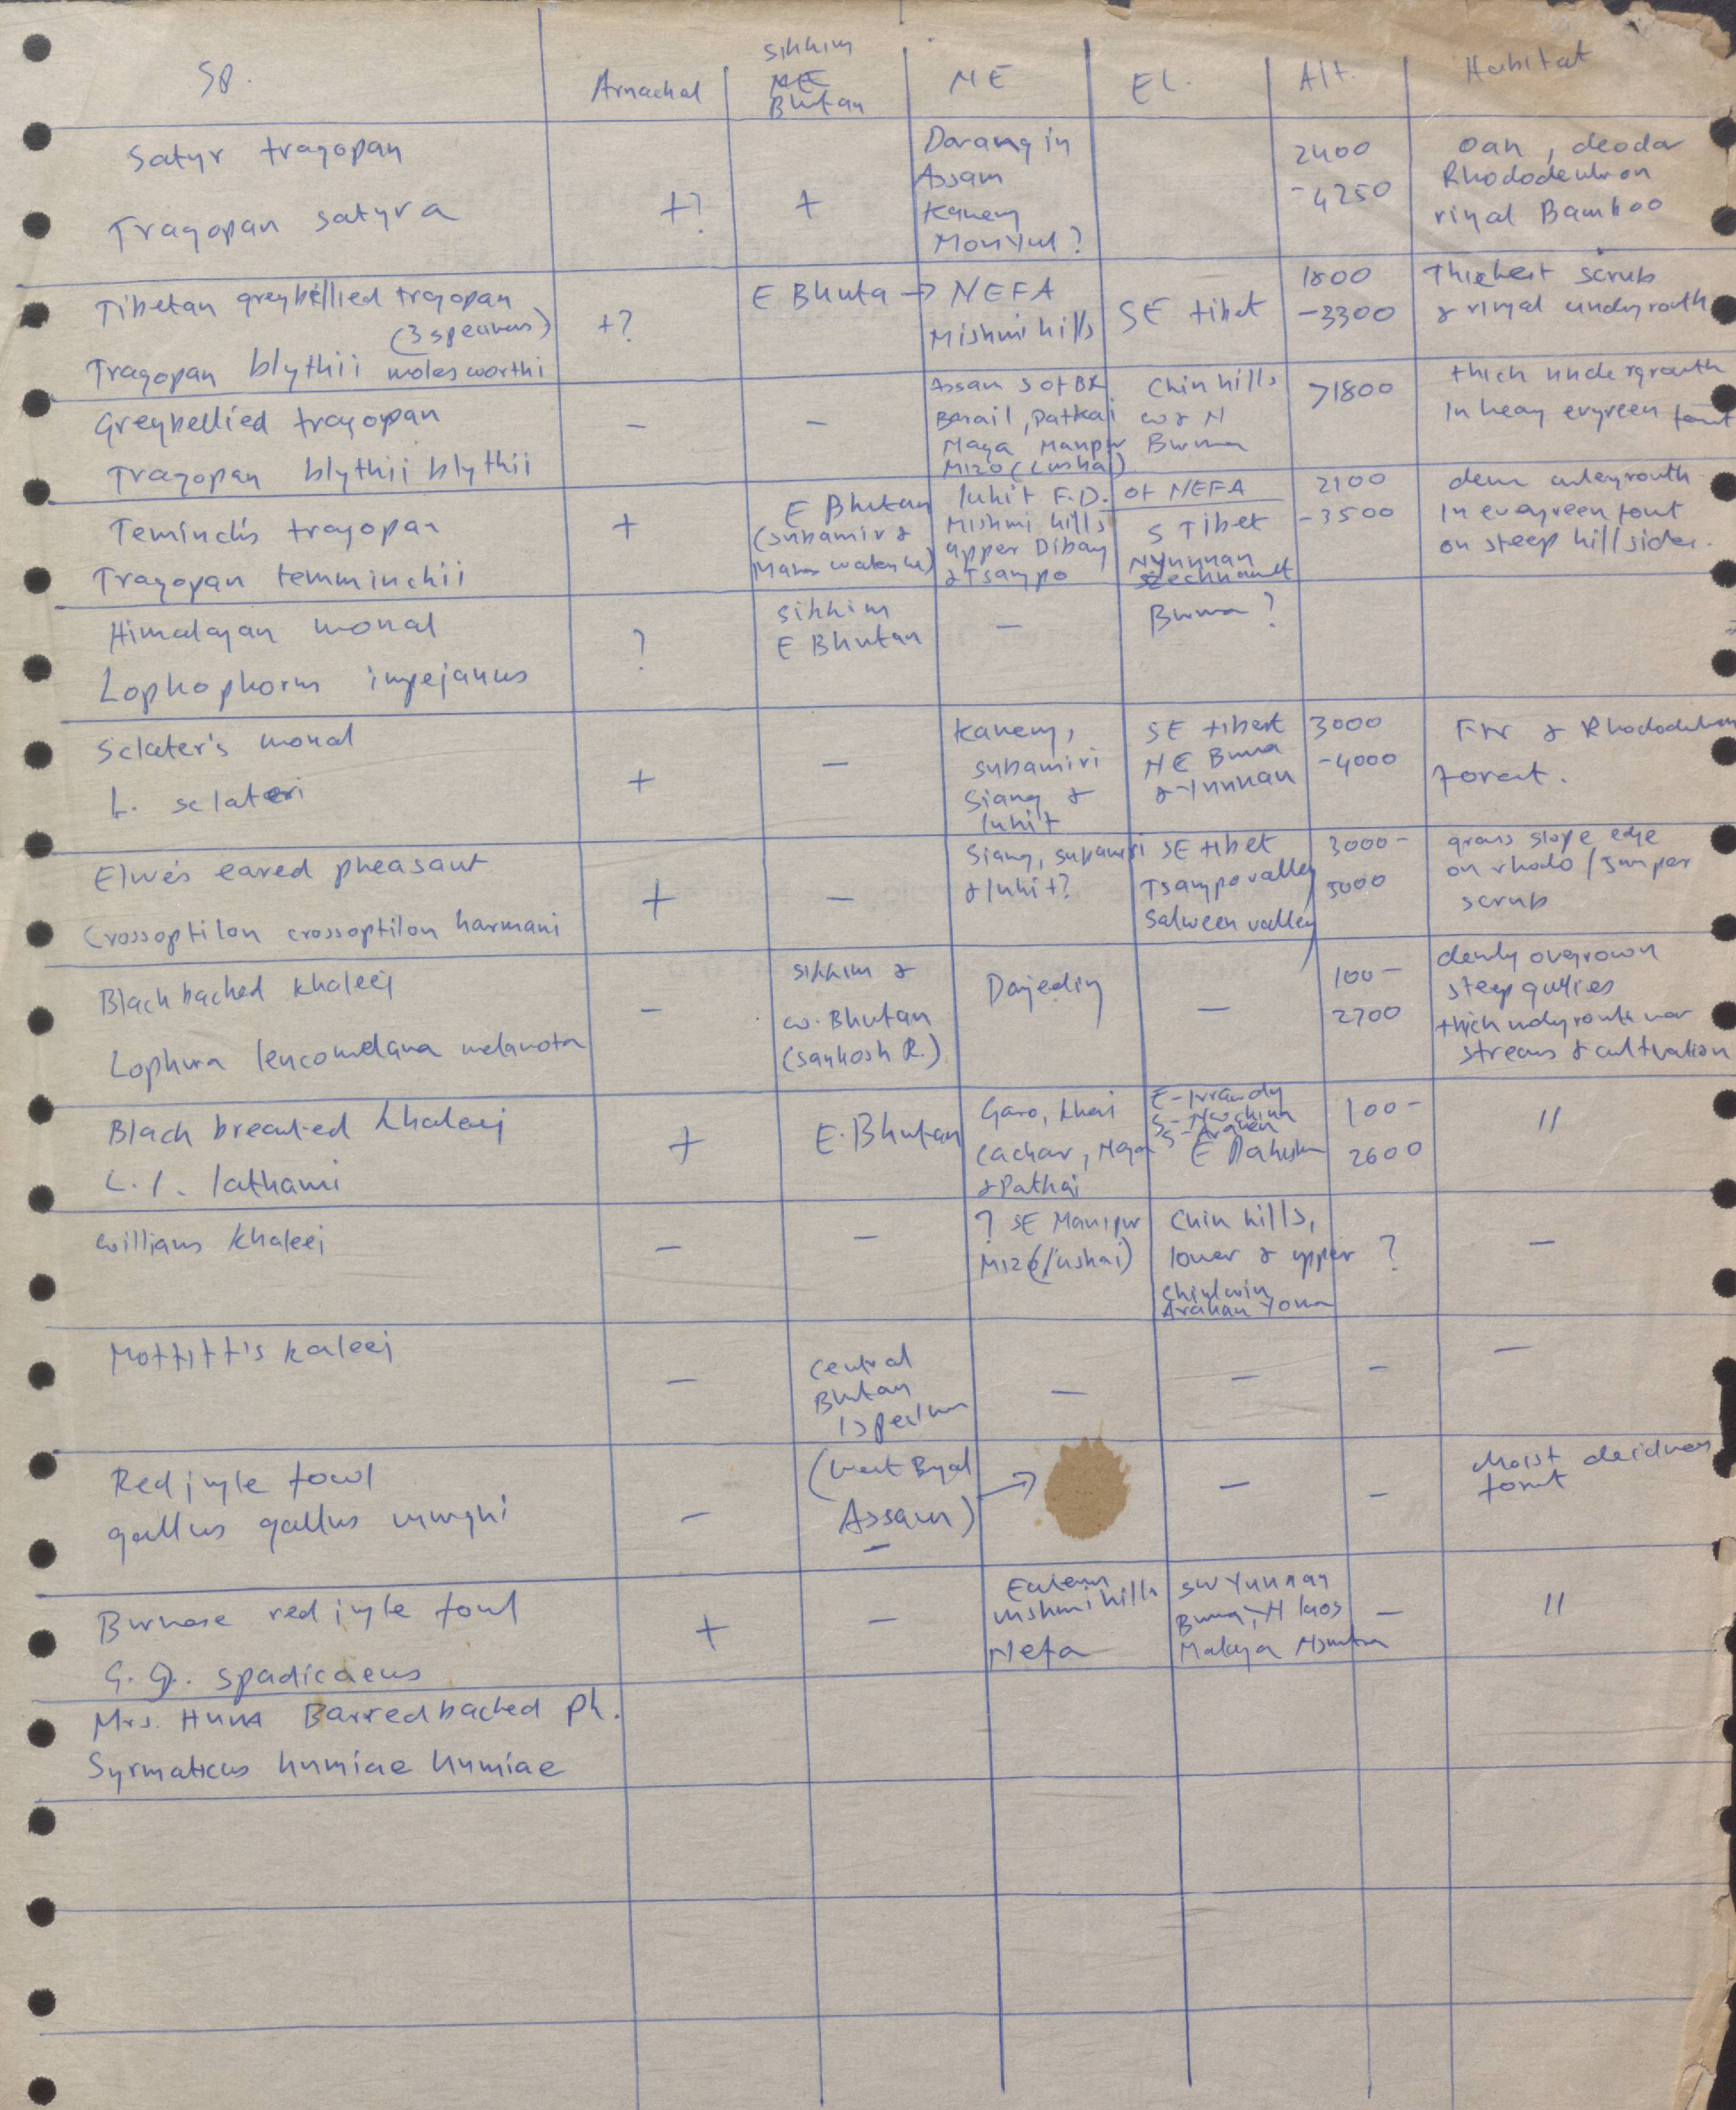 Sp.
Arnachal
Sikkim
NE
Bhutan
NE
El.
Alt.
Habitat
Satyr tragopan
Tragopan satyra
+?
+
Darang in
Assam
Kameng
Monyul?
2400
-4250
Oak, deodar
Rhododendron
ringal Bamboo
Tibetan greybellied tragopan
(3 specimens)
Tragopan blythii molesworthi
+?
E Bhuta → NEFA
Mishmi hills
SE tibet
1800
-3300
Thickest scrub
& ringal undergrowth
Greybellied tragopan
Tragopan blythii blythii
-
-
Assam S of BR
Barail, Patkai
Naga Manipur
Mizo (Lushai)
Chin hills
W & N
Burma
>1800
thick undergrowth
in heavy evgreen forest
Teminck's tragopan
Tragopan temminckii
+
E Bhutan
(Subansiri &
Manas
Luhit F.D. of NEFA
Mishmi hills
upper Dibang
& Tsampo
S Tibet
NYunnan
2100
-3500
dense undergrowth
in evergreen forest
on steep hillsides.
Himalayan monal
Lophophorus impejanus
?
Sikkim
E Bhutan
-
Burma?
Sclater's monal
L. sclateri
+
-
Kameng,
Subansiri
Siang &
Luhit
SE tibet
NE Burma
& Yunnan
3000
-4000
Fir & Rhododendron
forest.
Elwe's eared pheasant
Crossoptilon crossoptilon harmani
+
-
Siang, Subansiri
& Luhit?
SE tibet
Tsampo valley
Salween valley
3000-
5000
grass slope edge
on rhodo/Juniper
scrub
Black backed khaleej
Lophura leucomelana melanota
-
Sikkim &
W. Bhutan
(Sankosh R.)
Darjeeling
-
100-
2700
densely overgrown
steep gullies
thick undergrowth near
streams & cultivation
Black breasted khaleej
L. l. lathami
+
E. Bhutan
Garo, Khasi
Cachar, Naga
& Patkai
E-Irrawady
E Pakistan
100-
2600
"
Williams khaleej
-
-
? SE Manipur
Mizo (Lushai)
Chin hills,
lower & upper
Chindwin
Arakan Yoma
?
-
Moffitt's kaleej
-
Central
Bhutan
1 specimen
-
-
-
-
Red jungle fowl
gallus gallus murghi
-
(West Bengal
Assam) →
-
-
-
Moist deciduous
forest
Burmese red jungle fowl
G. g. spadicaeus
+
-
Eastern
Mishmi hills
Nefa
SW Yunnan
Burma, N laos
Malaya N Sumatra
-
"
Mrs. Hume Barredbacked Ph.
Syrmaticus humiae humiae